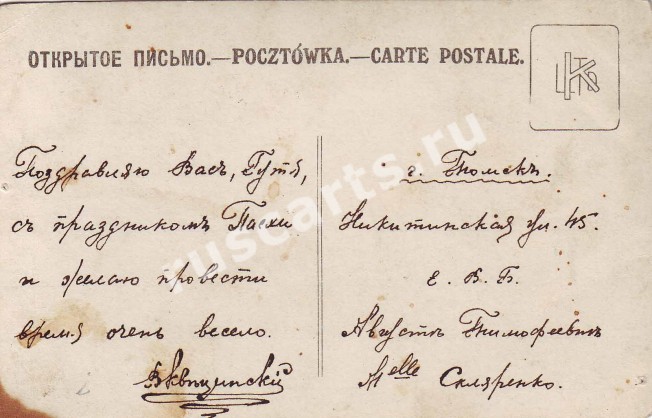 ОТКРЫТОЕ ПИСЬМО.—POCZTÓWKA.—CARTE POSTALE.
Поздравляю Васъ, Гутя,
съ праздникомъ Пасхи
и желаю провести
время очень весело.
г. Томскъ.
Никитинская ул. 45.
Е. В. Б.
Августѣ Тимофеевнѣ
Melle Скляренко.
ruscarts.ru